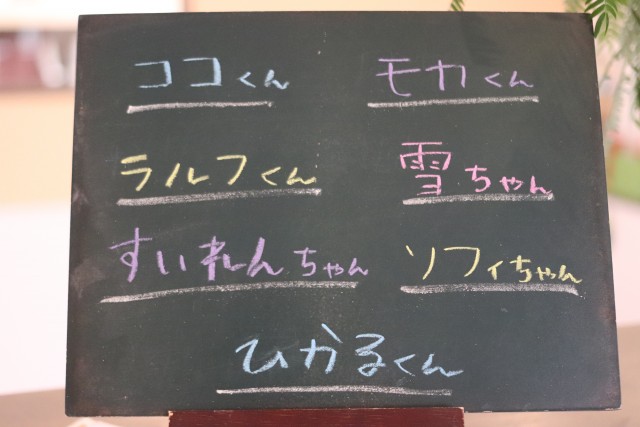 ココくん
モカくん
ラルフくん
雪ちゃん
すいれんちゃん
ソフィちゃん
ひかるくん